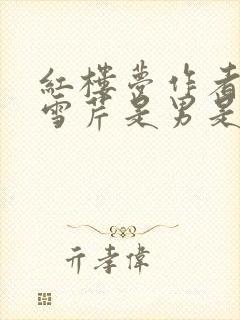 紅樓夢作者
雪芹是男是
亓孝偉